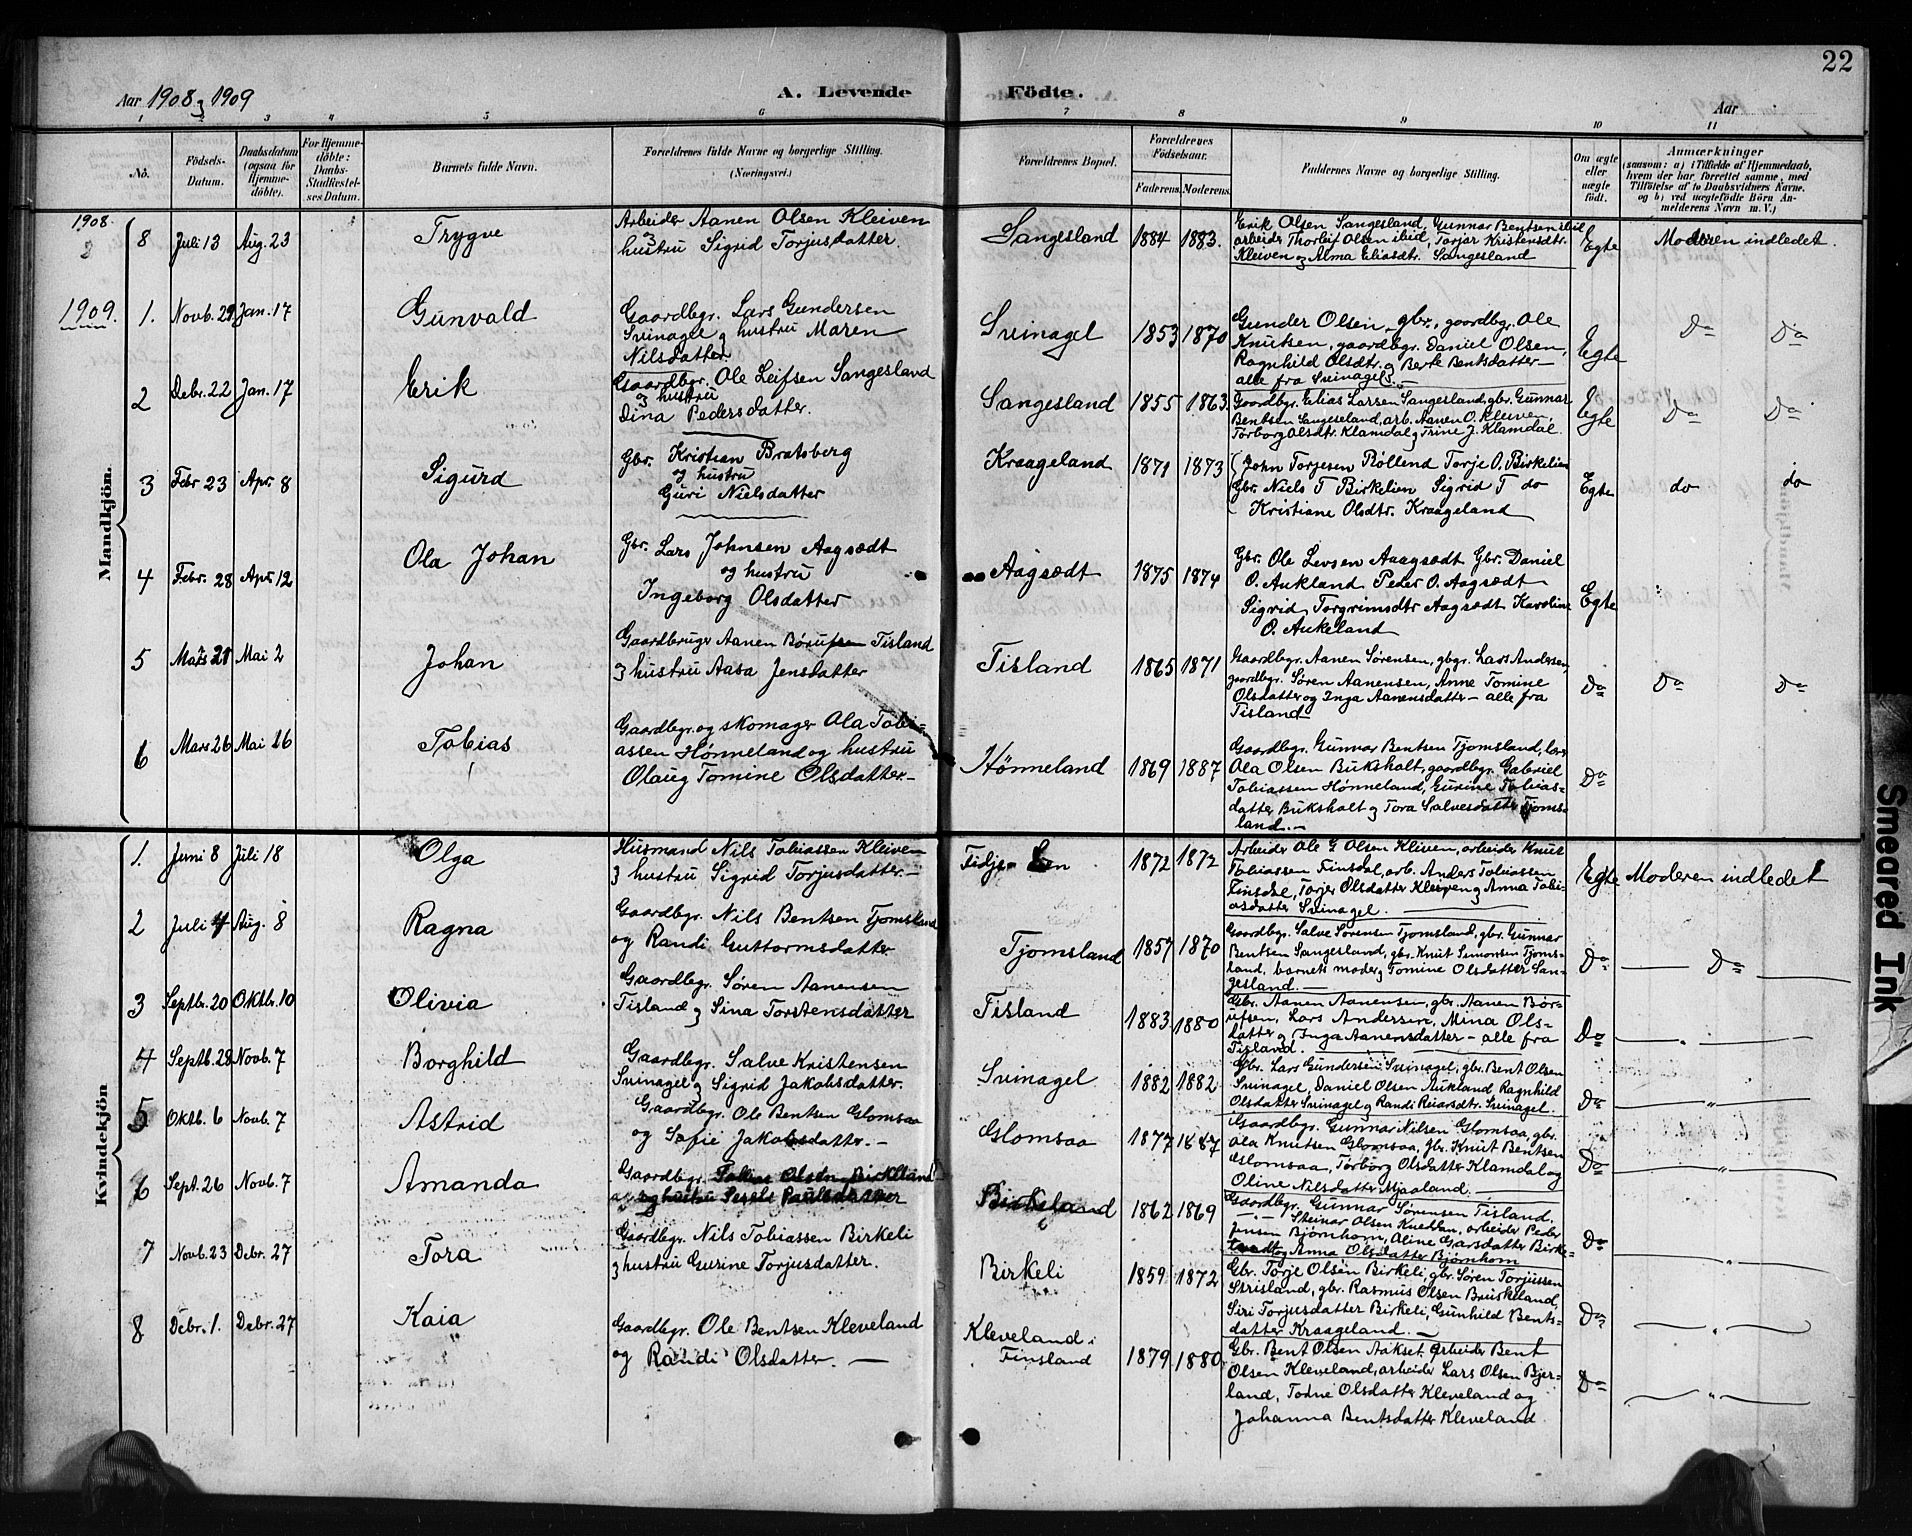 22
Aar 1908 og 1909
A. Levende
Födte.
Aar
1 2 3 4 5 6 7 8 9 10 11
No.
Födsels-
Datum.
Daabsdatum
(ogsaa for
Hjemme-
döbte).
For Hjemme-
döbte:
Daabs-
Stadfæstel-
ses Datum.
Barnets fulde Navn.
Forældrenes fulde Navne og borgerlige Stilling.
(Næringsvei.)
Forældrenes Bopæl.
Forældrenes
Födselsaar.
Faderens. Moderens.
Faddernes Navne og borgerlige Stilling.
Om ægte
eller
uægte
födt.
Anmærkninger
(saasom: a) i Tilfælde af Hjemmedaab,
hvem der har forrettet samme, med
Tilföielse af to Daabsvidners Navne,
og b) ved uægtefödte Börn An-
melderens Navn m. V.)
Mandkjön.
1908.
8 Juli 13 Aug. 23 Trygve
Arbeider Aanen Olsen Kleiven
og
hustru Sigrid Torjusdatter.
Sangesland 1884 1883.
Erik Olsen Sangesland, Gunnar Bentsen ibid
arbeider Thorleif Olsen ibid, Torjer Kristensdtr.
Kleiven og Alma Eliasdtr. Sangesland
Egte Moderen indledet.
1909.
1. Novb. 29 Jan. 17 Gunvald
Gaardbgr. Lars Gundersen
Svinagel og hustru Maren
Nilsdatter
Svinagel 1853 1870
Gunder Olsen, gbr., gaardbg. Ole
Knutsen, gaardbgr. Daniel Olsen,
Ragnhild Olsdtr. og Berte Bentsdatter —
alle fra Svinagel. —
Egte Do Do
2 Debr. 22 Jan. 17 Erik
Gaardbgr. Ole Leifsen Sangesland
og hustru
Dina Pedersdatter.
Sangesland 1855 1863.
Gaardbgr. Elias Larsen Sangesland, gbr. Gunnar
Bentsen Sangesland, arb. Aanen O. Kleiven,
Torborg Olsdtr. Klamdal og Trine J. Klamdal.
Egte Do Do
3 Febr 23 Apr. 8 Sigurd
Gbr. Kristian Bratsberg
og hustru
Guri Nielsdatter
Kraageland 1871 1873
John Torjesen Röllend Torje O. Birkelien
Gbr. Niels T Birkelien Sigrid T do
Kristiane Olsdtr. Kraageland
Egte do do
4 Febr. 28 Apr 12 Ola Johan
Gbr. Lars Johnsen Aagsædt
og hustru
Ingeborg Olsdatter
Aagsædt 1875 1874
Gbr. Ole Aaagsædt Gbr. Daniel
O. Aukland Peder O. Aagsædt
Sigrid Torgrimsdtr Aagsædt Karoline
O. Aukeland
Egte
5 Mars 21 Mai 2 Johan
Gaardbruger Aanen Børufsen Tisland
og hustru Aasa Jensdatter
Tisland 1865 1871
Gaardbgr. Aanen Sørensen, gbgr. Lars Andersen,
gaardbgr. Søren Aanensen, Anne Tomine
Olsdatter og Inga Aanensdatter — alle fra
Tisland
Do Do Do
6 Mars 26 Mai 26 Tobias
Gaardbgr. og skomager Ola Tobi-
assen Hønneland og hustru
Olaug Tomine Olsdatter —
Hønneland 1869 1887
Gaardbgr. Gunnar Bentsen Tjomsland,
Ola Olsen Buksholt, gaardbgr. Gabriel
Tobiassen Hønneland, Gurine Tobias-
datter Buksholt og Tora Salvesdatter Tjoms-
land. —
Do
Kvindekjön
1. Juni 8 Juli 18 Olga
Husmand Nils Tobiassen Kleiven
og hustru Sigrid Torjusdatter. —
1872 1872
Arbeider Ole G Olsen Kliven, arbeider Knut
Tobiassen Finsdal, arb. Anders Tobiassen
Finsdal, Torjer Olsdatter Kleiven og Anna Tobi-
asdatter Svinagel.
Egte Moderen indledet
2 Juli 4 Aug. 8 Ragna
Gaardbgr. Nils Bentsen Tjomsland
og Randi Guttormsdatter
Tjomsland 1857 1870
Gaardbgr. Salve Sørensen Tjomsland, gbr. Gunnar
Bentsen Sangesland, gbr. Knut Simonsen Tjoms-
land, barnets moder og Tomine Olsdatter San-
gesland. —
Do Do
3 Septbr. 20 Oktb. 10 Olivia
Gaardbgr. Søren Aanensen
Tisland og Sina Torstensdatter
Tisland 1883 1880
Gbr. Aanen Aanensen, gbr. Aanen Bør-
ufsen, Lars Andersen, Mina Ols-
datter og Inga Aanensdatter — alle fra
Tisland.
Do "
4 Septb. 28 Novb. 7 Borghild
Gaardbgr. Salve Kristensen
Svinagel og Sigrid Jakobsdatter.
Svinagel 1882 1882
Gbr. Lars Gundersen Svinagel, gbr. Bent Olsen
Svinagel, Daniel Olsen Aukland Ragnhild
Olsdatter Svinagel og Randi Reiarsdtr. Svinagel.
Do "
5 Oktb. 6 Novb. 7 Astrid
Gaardbgr. Ole Bentsen Glomsaa
og Sofie Jakobsdatter. —
Glomsaa 1877 1887
Gaardbgr. Gunnar Nilsen Glomsaa, gbr.
Ola Knutsen Glomsaa, gbr. Knut Bentsen
Glomsaa, Torborg Olsdatter Klamdal og
Oline Nilsdatter Mjaaland. —
Do "
6 Sept. 26 Novb. 7 Amanda
Gaardbgr. Tobias Olsen Birkeland
og hustru Paulsdatter
Birkeland 1862 1869
Gaardbgr. Gunnar Sørensen Tisland.
— " — Steinar Olsen arbeider Peder
Jensen Bjørnhom, Aline Larsdatter Birke-
land og Anna Olsdatter Bjørnhom
Do "
7 Novb. 23 Debr. 27 Tora
Gaardbgr. Nils Tobiassen Birkeli
og hustru Gurine Torjusdatter.
Birkeli 1859 1872
Gbr. Torje Olsen Birkeli, gbr. Søren Torjussen
Strisland, gbr. Rasmus Olsen Bruskeland,
Siri Torjusdatter Birkeli, Gunhild Bents-
datter Kraageland. —
Do "
8 Debr. 1. Debr. 27 Kaia
Gaardbgr. Ole Bentsen Kleveland
og Randi Olsdatter. —
Kleveland i
Finsland
1879 1880
Gbr. Bent Olsen Aakset, arbeider Bent
Olsen Kleveland, arbeider Lars Olsen Bjer-
land, Todne Olsdatter Kleveland og
Johanna Bentsdatter Kleveland
Do "
Smeared Ink